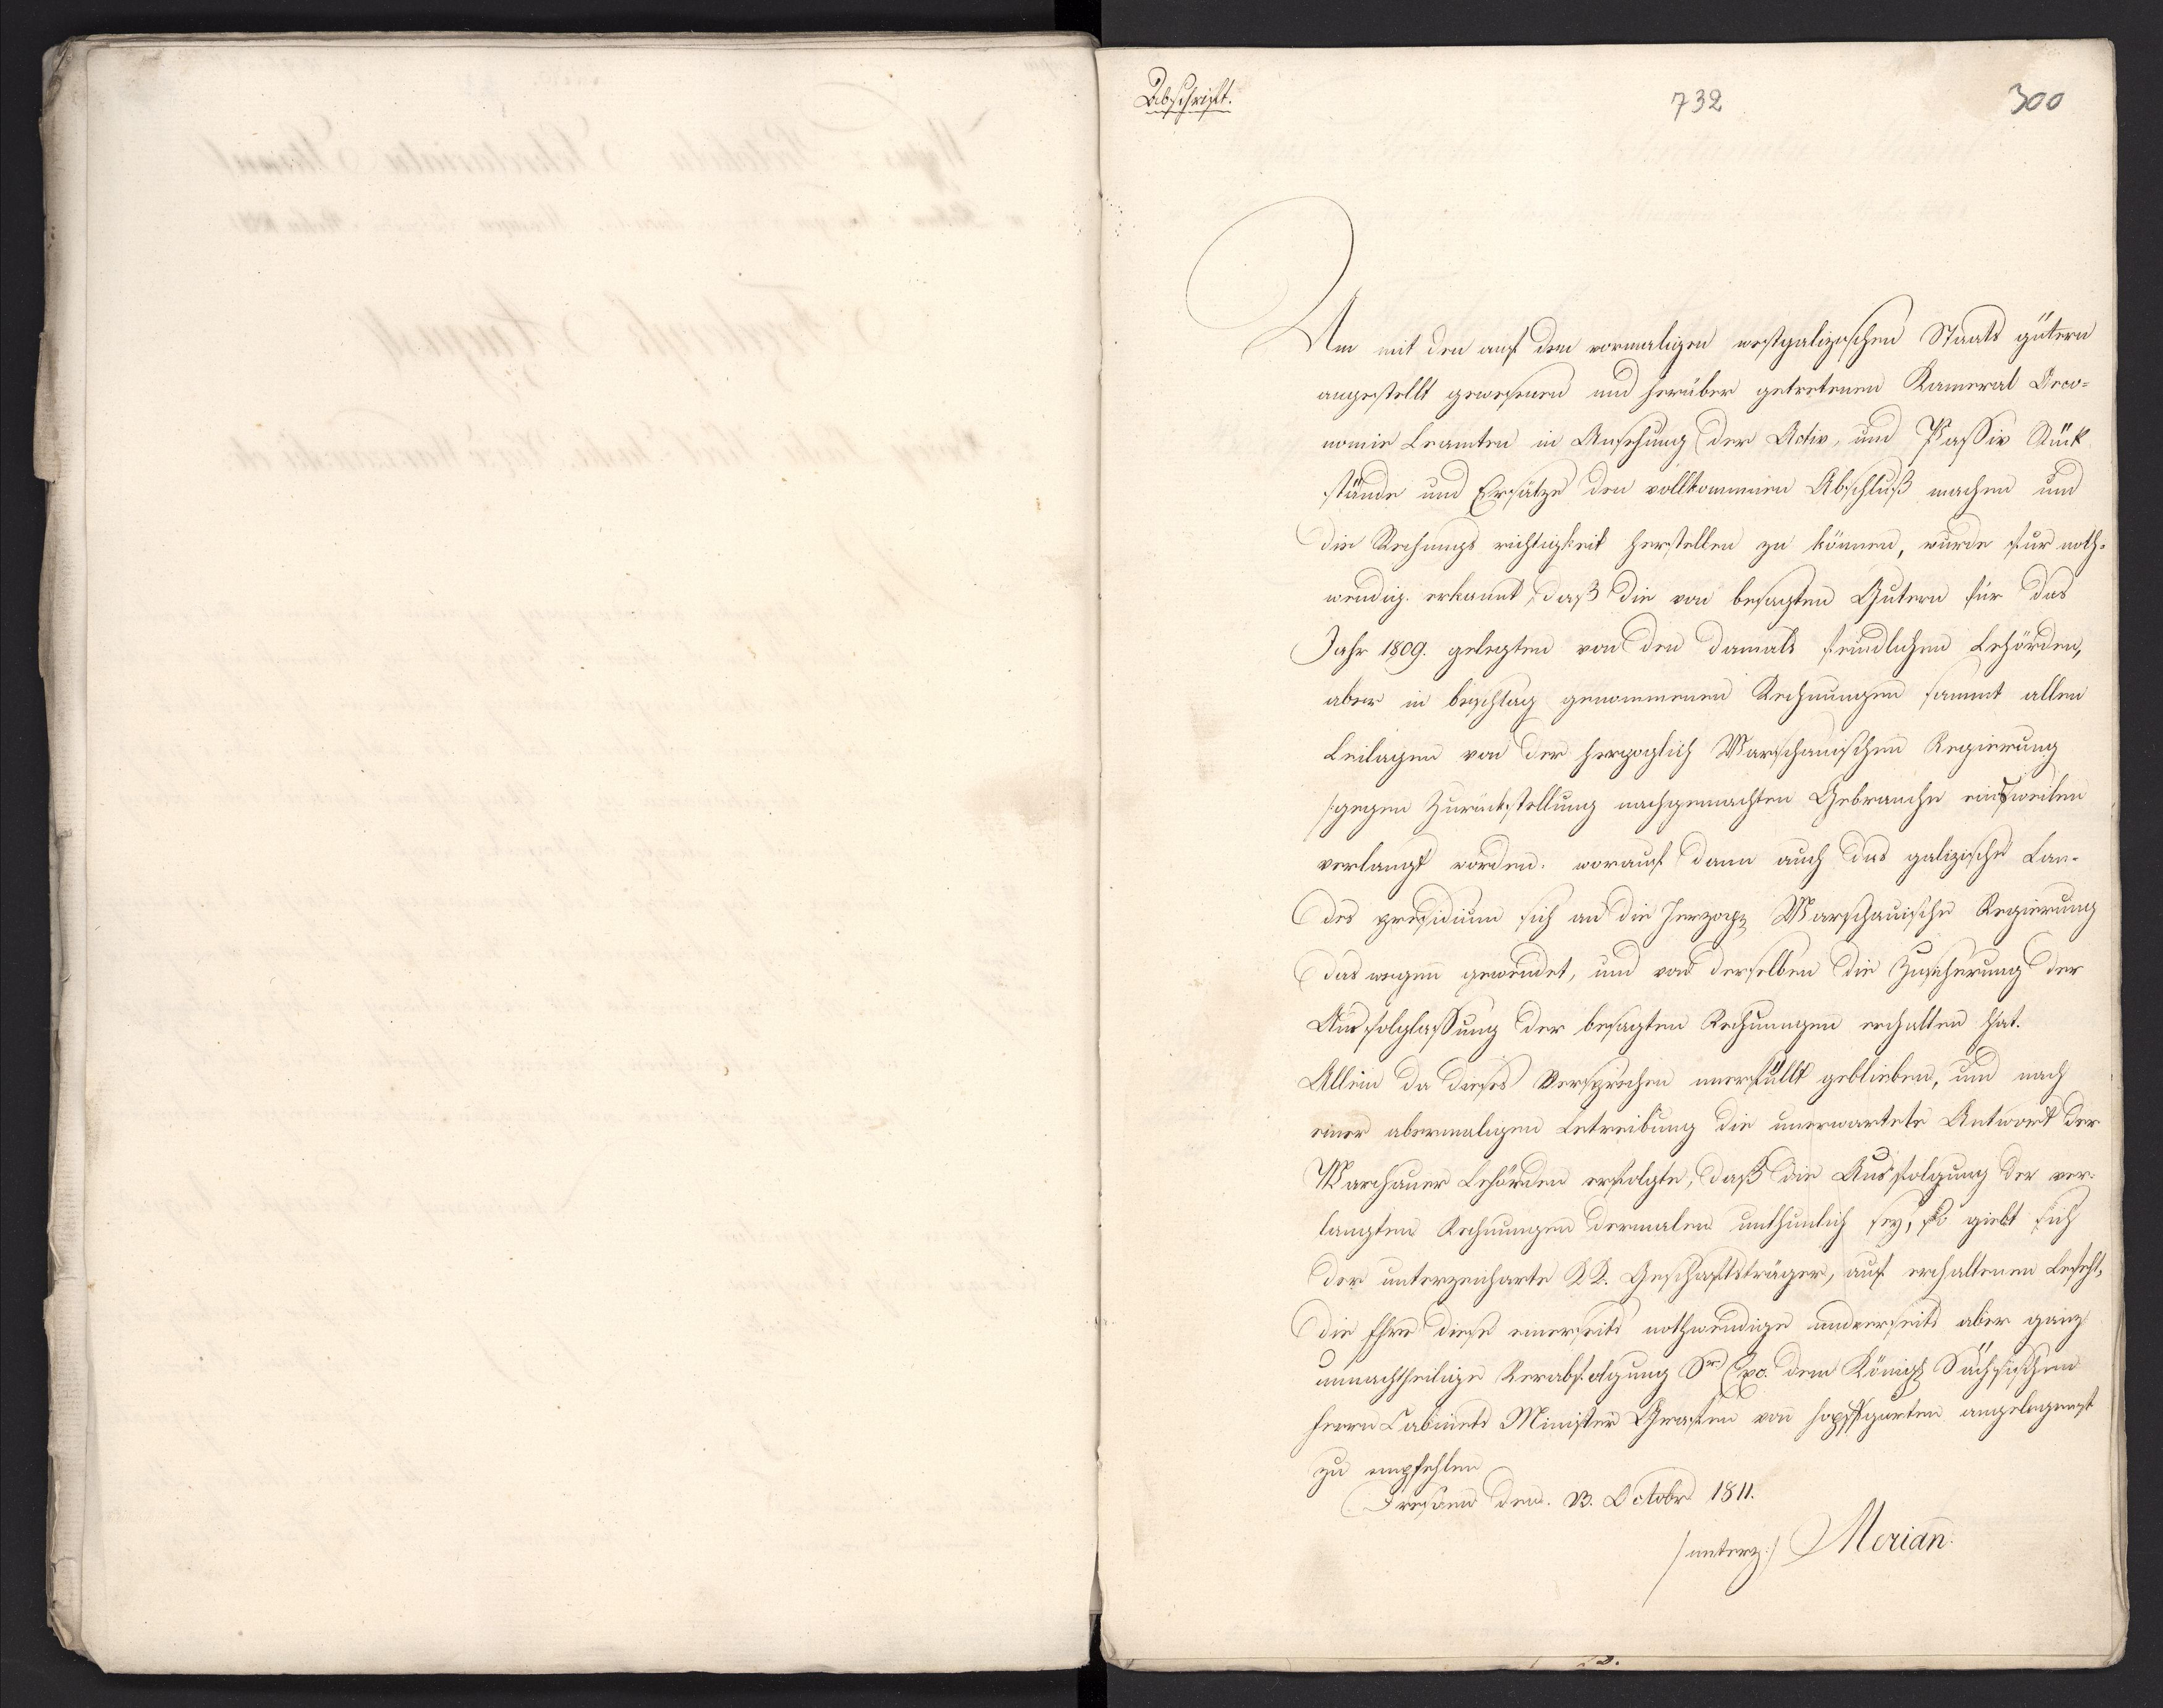 Abschrift.
732
300
Um mit den auf den vormaligen westgalizischen Staats gütern
angestellt gewesenen und herüber getretenen Kameral Oeco-
nomie Beamten in Ansehung der Activ, und Passiv Rück
stände und Ersätze den vollkommnen Abschluß machen und
die Rechnungs richtigkeit herstellen zu können, wurde für noth-
wendig erkannt, daß die von besagten Gutern für das
Jahr 1809. gelegten von den damals feindlichen Behörden,
aber in beschlag genommenen Rechnungen sammt allen
Beilagen von der herzoglich Warschauischen Regierung
/:gegen Zurückstellung nachgemachten Gebrauche einsweilen
verlangt worden. worauf dann auch das galizische Lan-
des presidium sich an die Herzogl Warschauische Regierung
das wegen gewendet, und von derselben die Zusicherung der
Ausfolglassung der besagten Rechnungen erhalten hat.
Allein da dieses Versprechen unerfüllt geblieben, und nach
einer abermaligen Betreibung die unerwartete Antwort der
Warchauer Behörden erfolgte, daß die Ausfolgung der ver-
langten Rechnungen dermalen unthunlich sey, so giebt sich
der unterzeichnete K.K. Geschaftsträger, auf erhaltenen Befehl,
die Ehre diese einerseits nothwendige andrerseits aber ganz
unnachtheilige Verabfolgung Sr Exc. dem Königl Sächsischen
Herrn Cabinets Minister Grafen von Hopffgarten angelegenst
zu empfehlen
Dresden den. 13. Octobr 1811.
/unterz:/ Merian.